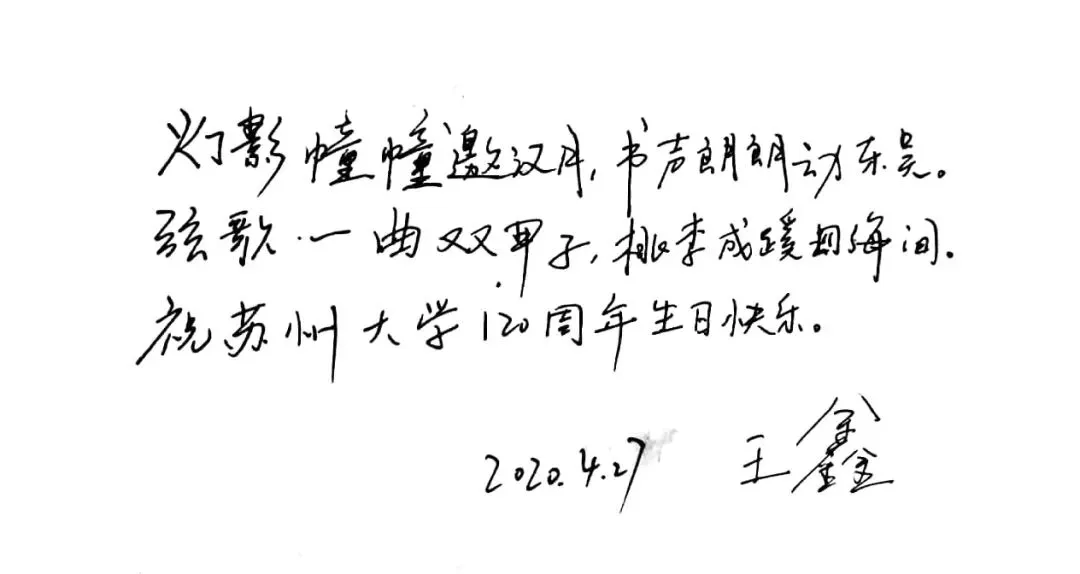 灯影幢幢邀汉月,书声朗朗动东吴。
弦歌一曲双甲子,桃李成蹊四海间.
祝苏州大学120周年生日快乐。
2020.4.27 王鑫